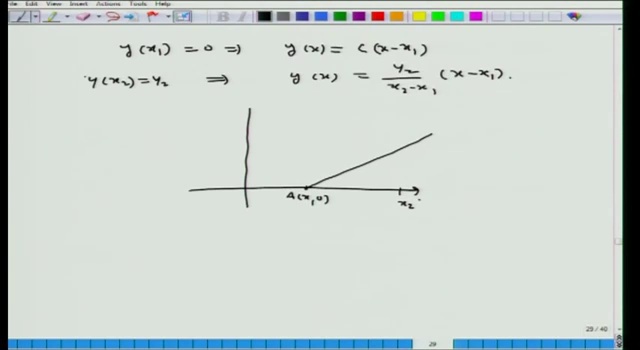 File View Insert Actions Tools Help
y(x₁) = 0 ⇒ y(x) = c(x-x₁)
y(x₂) = y₂ ⇒ y(x) = y₂/(x₂-x₁) (x-x₁).
A(x,0)
x₂
29 / 40
29